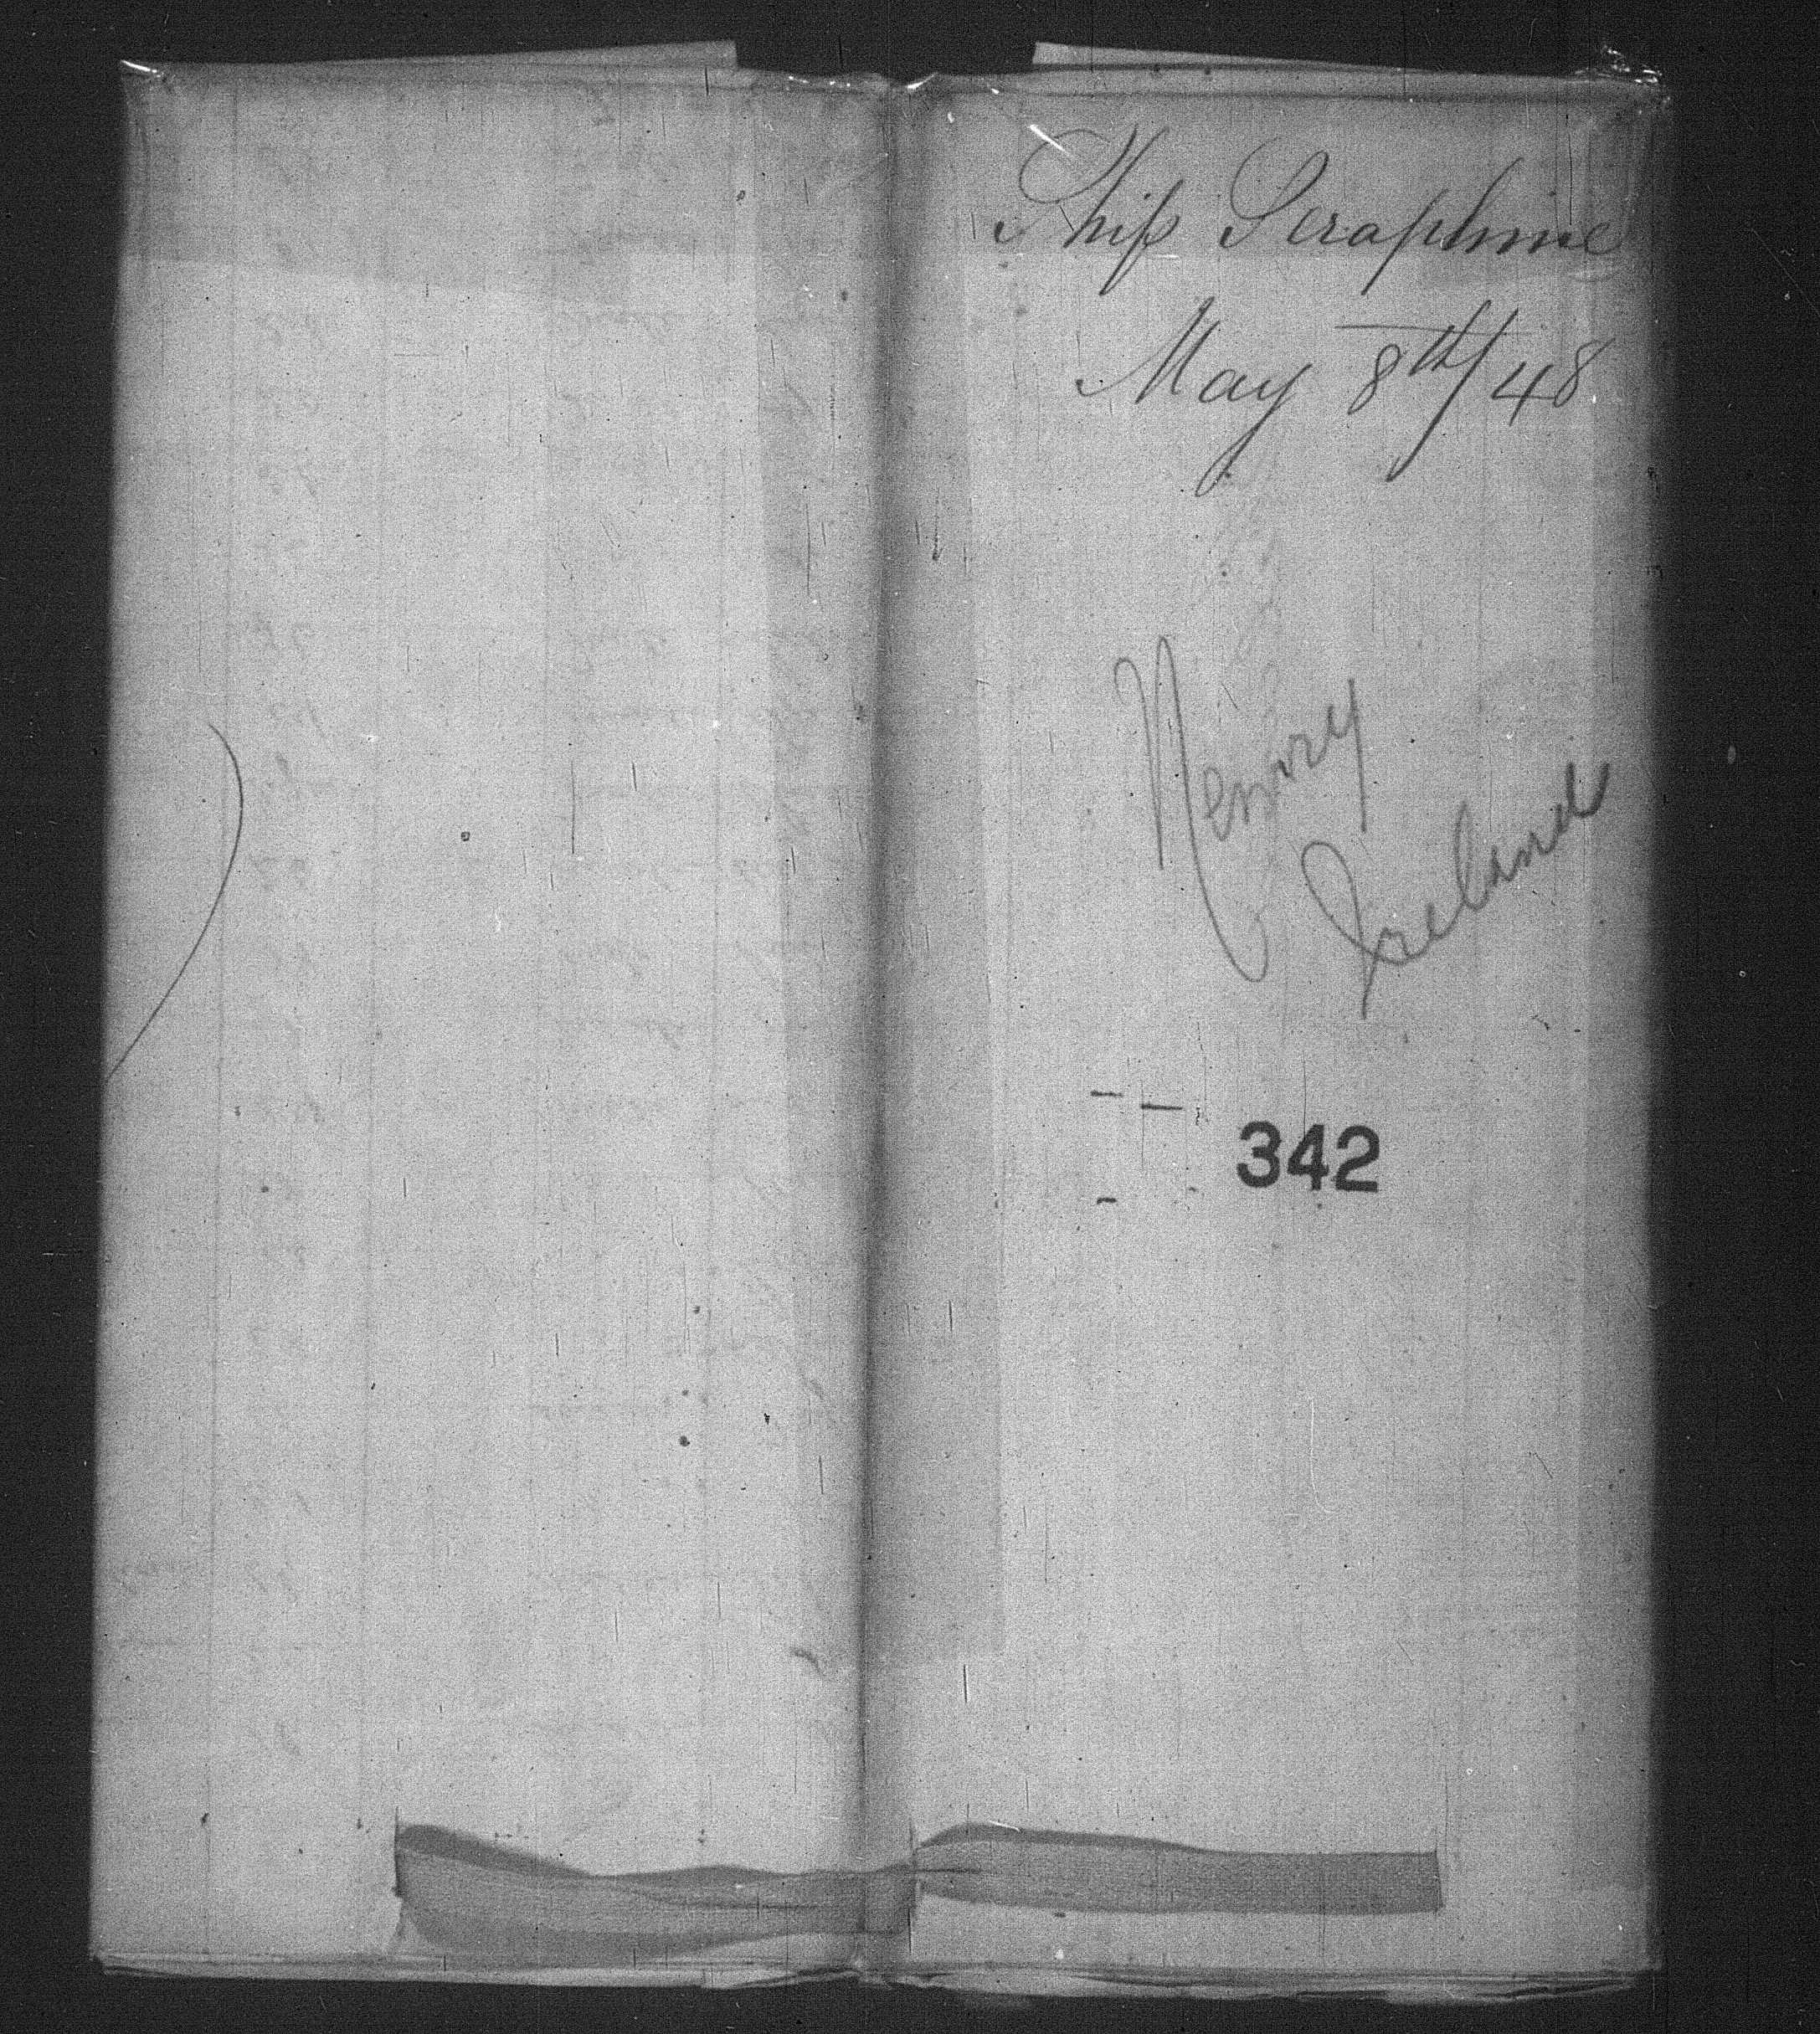 Ship Seraphine
May 8th/48
Newry
Ireland
342